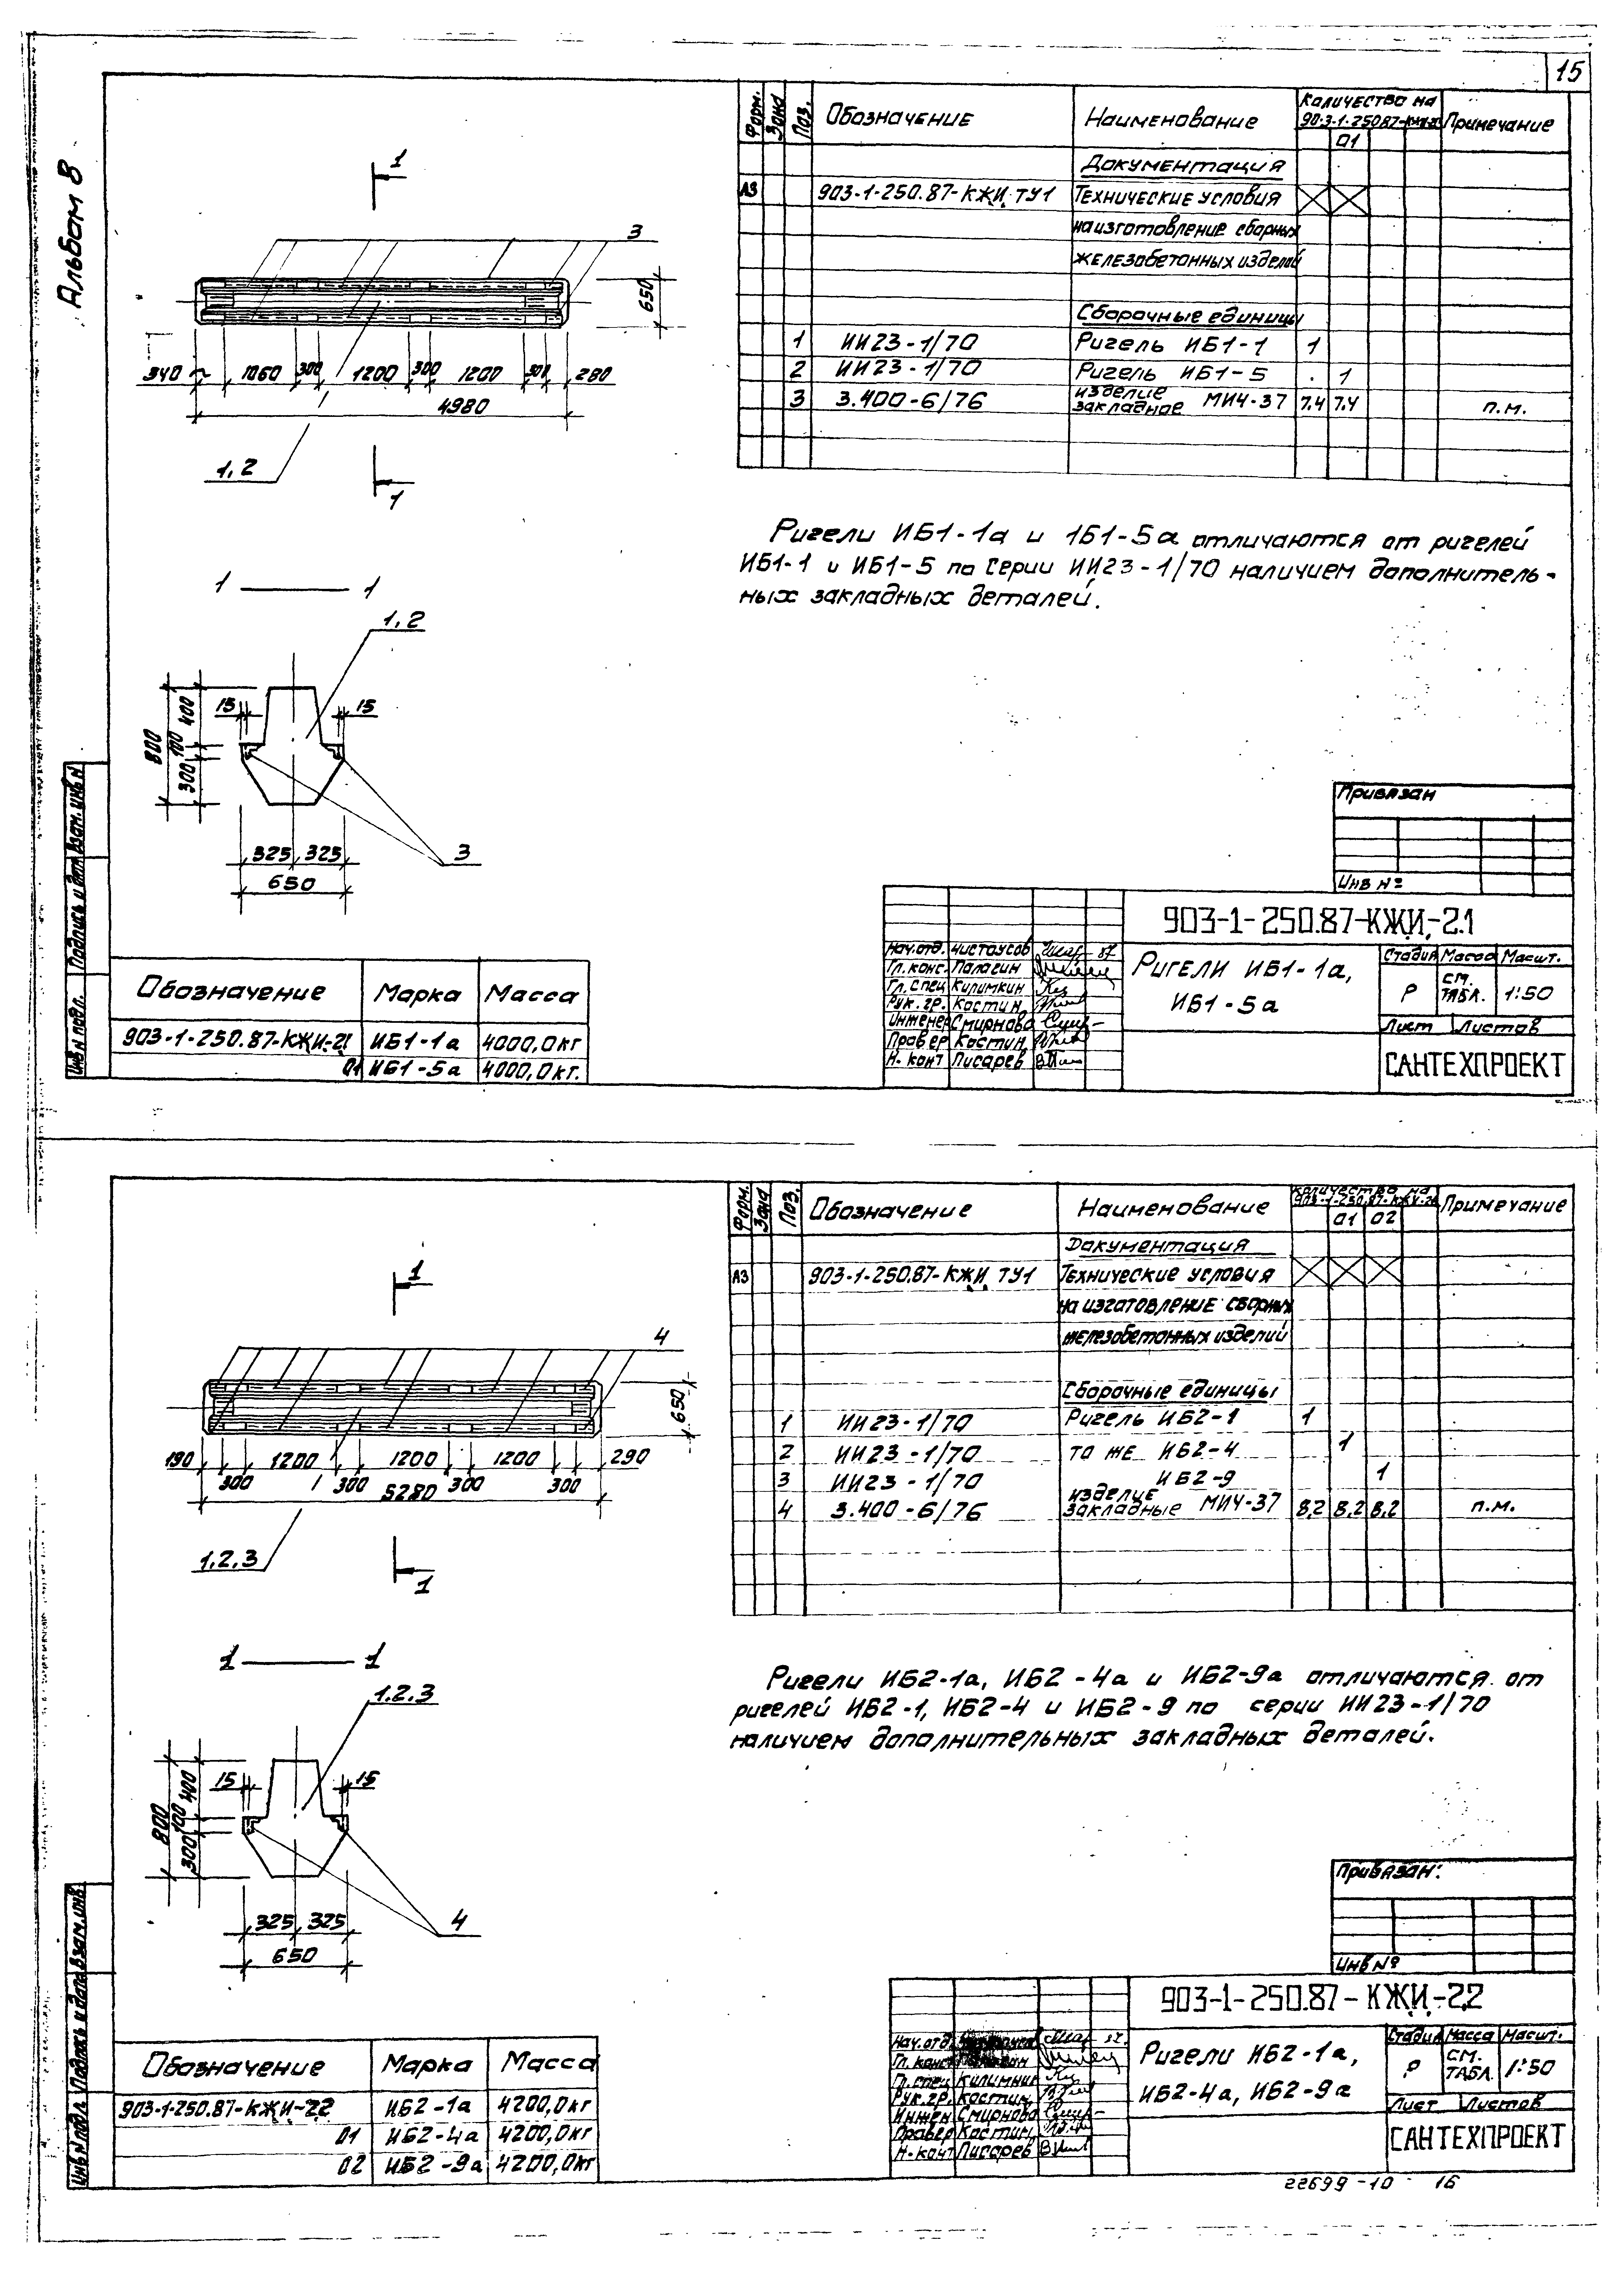 15
Альбом 8
Форм.
Зона
Поз.
Обозначение
Наименование
Количество на
903-1-250.87-КЖИ-21
01
Примечание
Документация
А3 903-1-250.87-КЖИ ТУ1 Технические условия
на изготовление сборных
железобетонных изделий
Сборочные единицы
1 ИИ23-1/70 Ригель ИБ1-1 1
2 ИИ23-1/70 Ригель ИБ1-5 1
3 3.400-6/76 изделие закладное МИ4-37 7.4 7.4 п.м.
1
3
650
340 1060 300 1200 300 1200 300 280
4980
1,2
1
Ригели ИБ1-1а и 1Б1-5а отличаются от ригелей
ИБ1-1 и ИБ1-5 по серии ИИ23-1/70 наличием дополнитель-
ных закладных деталей.
1 — 1
1,2
15 15
800
400
100
300
325 325
650
3
Привязан
Инв №
903-1-250.87-КЖИ-2.1
Нач.отд. Чистоусов 87
Гл.конс. Палагин
Гл.спец Килимкин
Рук.гр. Костин
Инженер Смирнова
Провер Костин
Н.конт Писарев
Ригели ИБ1-1а,
ИБ1-5а
Стадия Масса Масшт.
Р см. табл. 1:50
Лист Листов
САНТЕХПРОЕКТ
Обозначение Марка Масса
903-1-250.87-КЖИ-21 ИБ1-1а 4000,0кг
01 ИБ1-5а 4000,0кг.
Инв № подл. Подпись и дат Взам.инв N
Форм.
Зона
Поз.
Обозначение
Наименование
Количество на
903-1-250.87-КЖИ-22
01 02
Примечание
Документация
А3 903-1-250.87-КЖИ ТУ1 Технические условия
на изготовление сборных
железобетонных изделий
Сборочные единицы
1 ИИ23-1/70 Ригель ИБ2-1 1
2 ИИ23-1/70 то же ИБ2-4 1
3 ИИ23-1/70 ИБ2-9 1
4 3.400-6/76 изделие закладные МИ4-37 8,2 8,2 8,2 п.м.
1
4
650
190 1200 1200 1200 290
300 300 300 300
5280
1.2.3
1
Ригели ИБ2-1а, ИБ2-4а и ИБ2-9а отличаются от
ригелей ИБ2-1, ИБ2-4 и ИБ2-9 по серии ИИ23-1/70
наличием дополнительных закладных деталей.
1 — 1
1.2.3
15 15
800
400
100
300
325 325
650
4
Привязан:
Инв №
903-1-250.87-КЖИ-2.2
Нач.отд
Гл.конс
Гл.спец Килимник
Рук.гр. Костин
Инжен Смирнова
Провер Костин
Н.конт Писарев
Ригели ИБ2-1а,
ИБ2-4а, ИБ2-9а
Стадия Масса Масшт.
Р см. табл. 1:50
Лист Листов
САНТЕХПРОЕКТ
Обозначение Марка Масса
903-1-250.87-КЖИ-22 ИБ2-1а 4200,0кг
01 ИБ2-4а 4200,0кг
02 ИБ2-9а 4200,0кг
Инв № подл. Подпись и дата Взам.инв.
22699-10 16